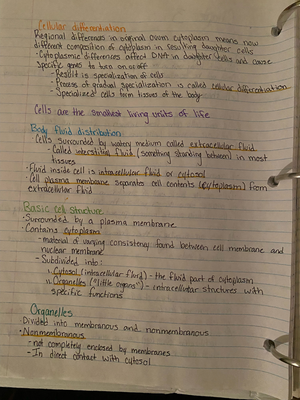 Cellular differentiation
Regional differences in original ovum cytoplasm means now
different composition of cytoplasm in resulting daughter cells
- Cytoplasmic differences affect DNA in daughter cells and cause
specific genes to turn on or off
- Result is specialization of cells
- Process of gradual specialization is called cellular differentiation
- Specialized cells form tissues of the body
Cells are the smallest living units of life
Body fluid distribution
- Cells surrounded by watery medium called extracellular fluid
- Called interstitial fluid (something standing between) in most
tissues
- Fluid inside cell is intracellular fluid or cytosol
- Cell plasma membrane separates cell contents (cytoplasm) from
extracellular fluid
Basic cell structure
- Surrounded by a plasma membrane
- Contains cytoplasm
- material of varying consistency found between cell membrane and
nuclear membrane
- Subdivided into:
i. Cytosol (intracellular fluid) - the fluid part of cytoplasm
ii. Organelles ("little organs") - intracellular structures with
specific functions
Organelles
- Divided into membranous and nonmembranous
- Nonmembranous
- not completely enclosed by membranes
- In direct contact with cytosol